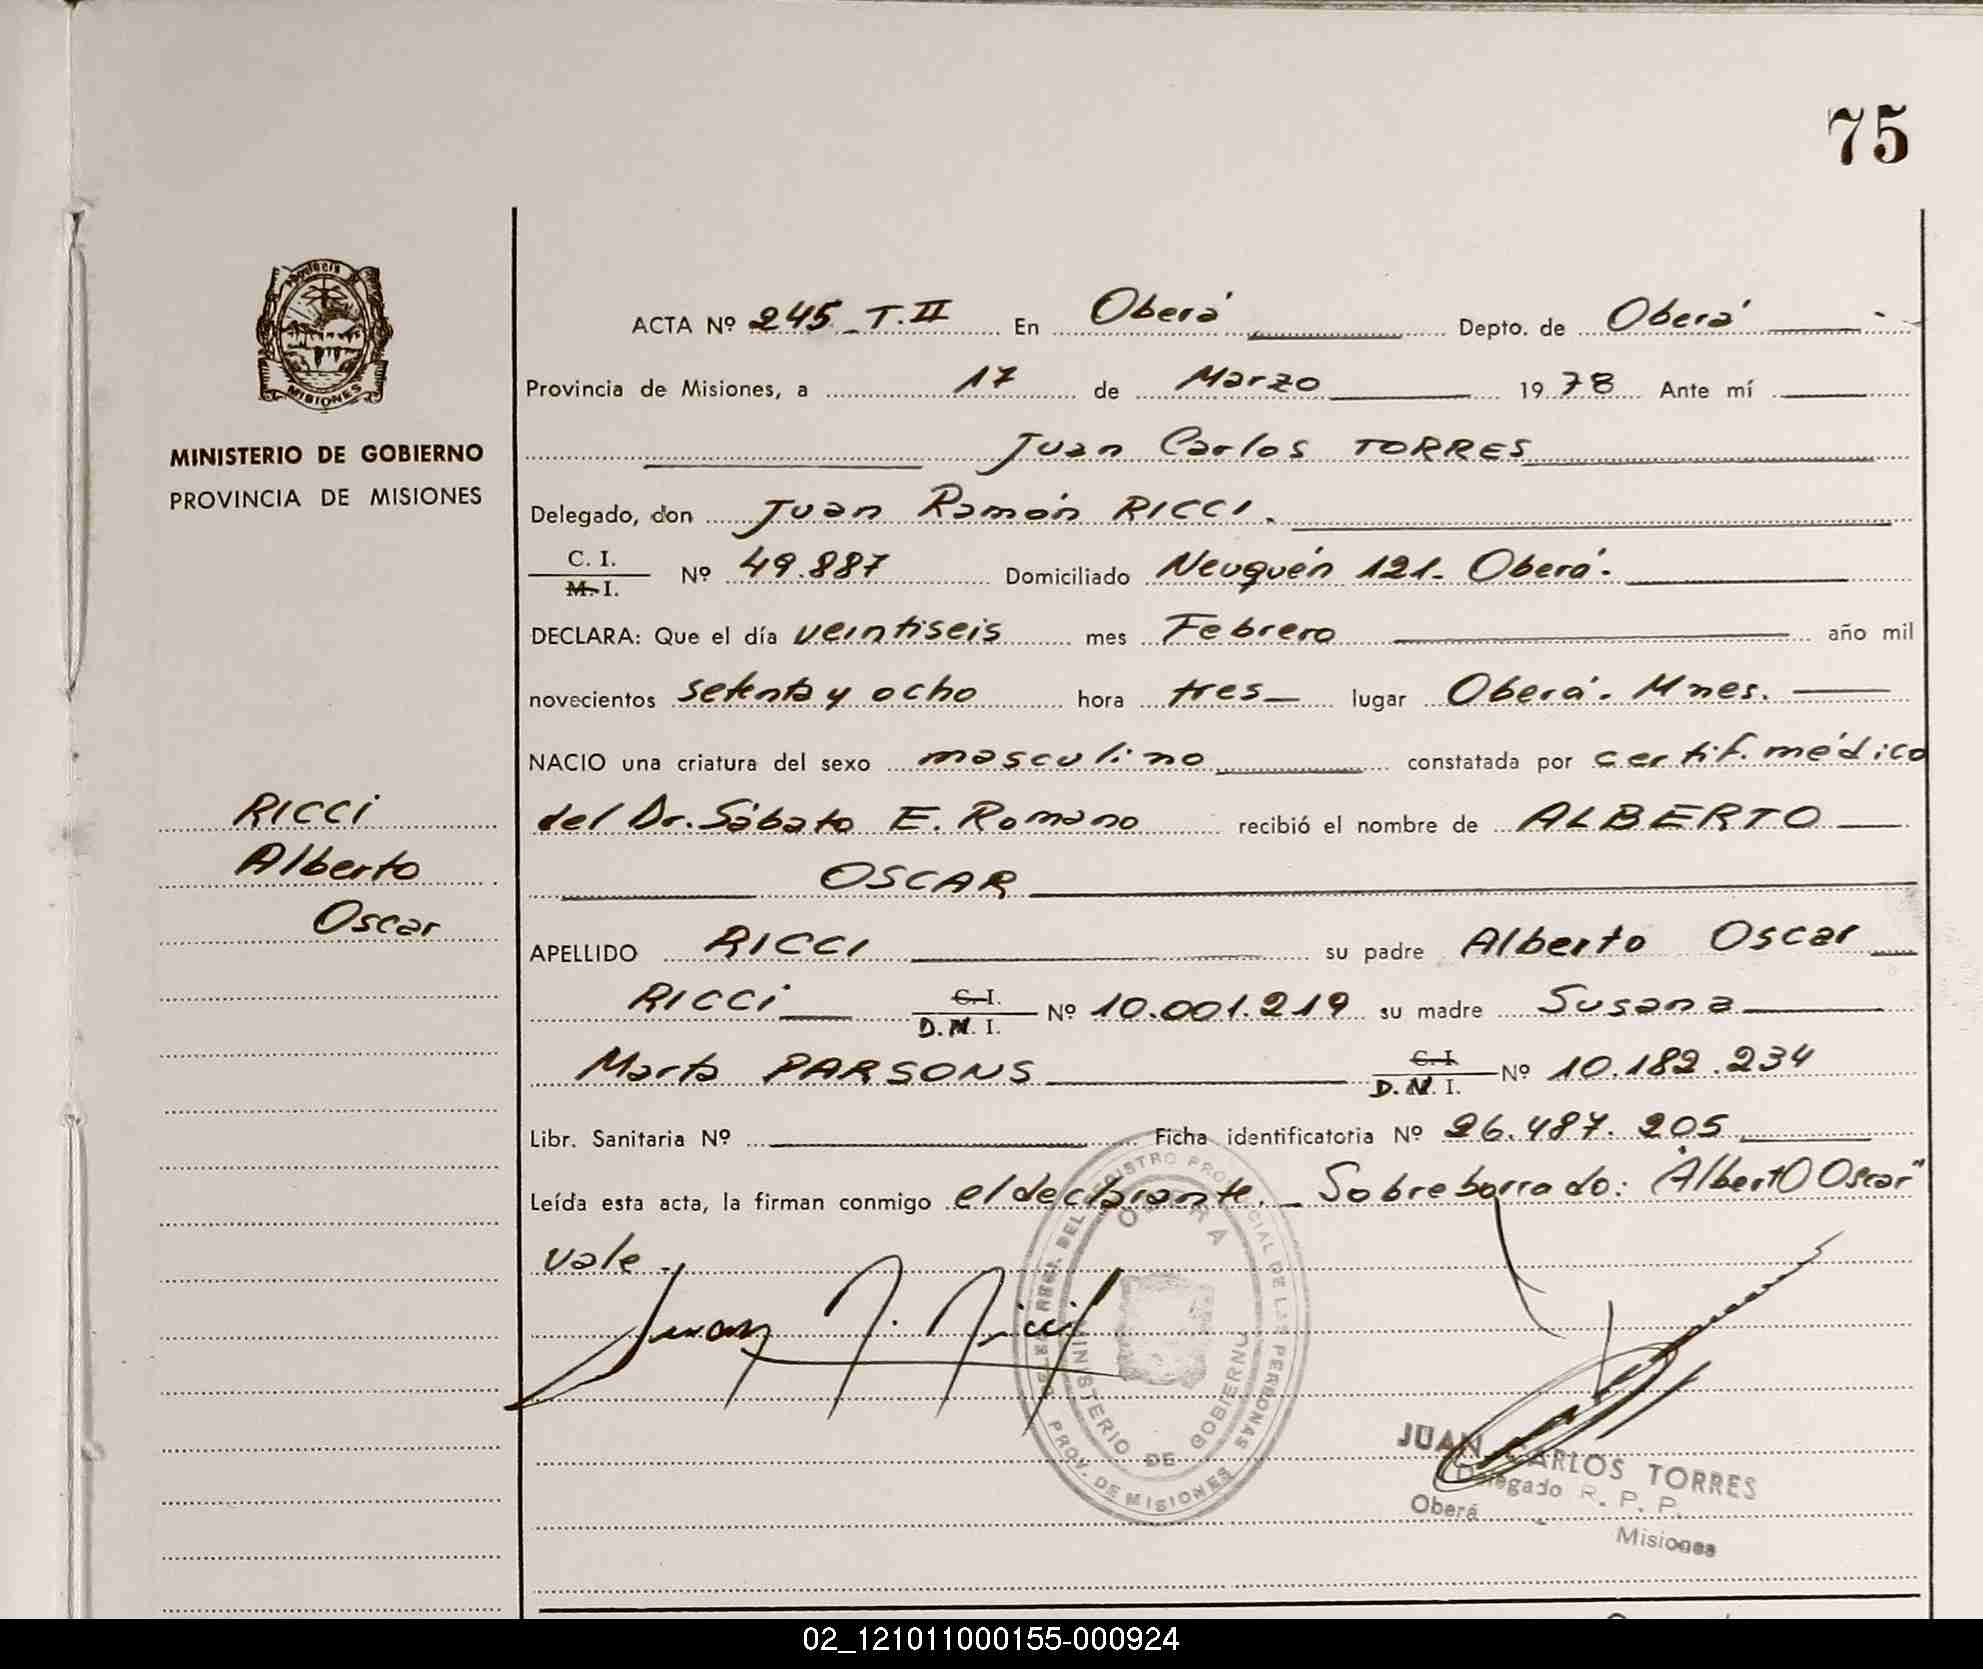 75
Provincia de
MISIONES
MINISTERIO DE GOBIERNO
PROVINCIA DE MISIONES
RICCI
Alberto
Oscar
ACTA Nº 245_T.II En Oberá Depto. de Oberá
Provincia de Misiones, a 17 de Marzo 1978 Ante mí
Juan Carlos TORRES
Delegado, don Juan Ramón RICCI.
C. I.
M. I.
Nº 49.887 Domiciliado Neuquén 121- Oberá.
DECLARA: Que el día veintiseis mes Febrero año mil
novecientos setenta y ocho hora tres lugar Oberá. Mnes.
NACIO una criatura del sexo masculino constatada por certif. médico
del Dr. Sábato E. Romano recibió el nombre de ALBERTO
OSCAR
APELLIDO RICCI su padre Alberto Oscar
RICCI C. I. D. N. I. Nº 10.001.219 su madre Susana
Marta PARSONS C. I. D. N. I. Nº 10.182.234
Libr. Sanitaria Nº Ficha identificatoria Nº 26.487.205
Leída esta acta, la firman conmigo el declarante._ Sobreborrado: "Alberto Oscar"
vale.
Juan R. Ricci
REGISTRO PROVINCIAL DE LAS PERSONAS
PROV. DE MISIONES
OBERA
MINISTERIO DE GOBIERNO
JUAN CARLOS TORRES
Delegado R. P. P.
Oberá - Misiones
02_121011000155-000924